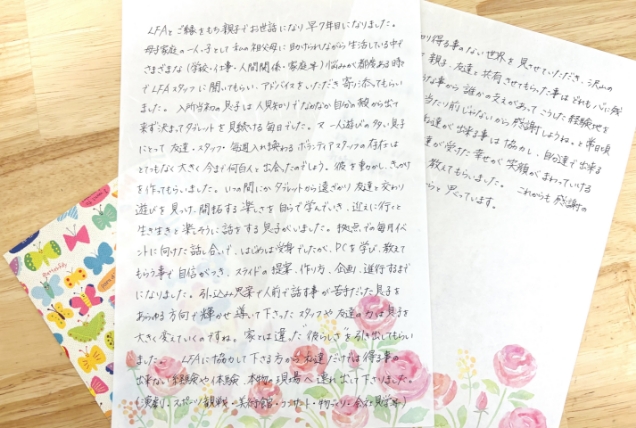 LFAとご縁をもち親子でお世話になり早7年目になりました。
母子家庭の一人っ子として私の祖父母に助けられながら生活している中で
さまざまな(学校・仕事・人間関係・家庭等)悩みがある時
でLFAスタッフに聞いてもらい、アドバイスをいただき寄り添ってもらい
ました。入所当初の息子は人見知りでなかなか自分の殻から出て
来ず決まってタブレットを見続ける毎日でした。又一人遊びの多い息子
にとって友達・スタッフ・毎週入れ換わるボランティアスタッフの存在は
とてもなく大きく今まで何百人と出会ったのでしょう。彼を動かし、きっかけ
を作ってもらいました。いつの間にかタブレットから遠ざかり友達と交わり
遊びを見いだし開拓する楽しさを自らで学んでいき、迎えに行くと
生き生きと楽しそうに話をする息子がいました。拠点での毎月イベ
ントに向けた話し合いで、はじめは受身でしたが、PCを学び、教えて
もらう事で自信がつき、スライドの提案、作り方、企画、進行するまで
になりました。引込み思案で人前で話す事が苦手だった息子を
あらゆる方向で輝かせ導いて下さったスタッフや友達の力は息子を
大きく変えていくのですね。家では違った"彼らしさ"を引き出してもらい
ました。LFAに協力して下さる方から私達だけでは得る事の
出来ない経験や体験、本物の現場へ連れ出して下さいました。
(演劇・スポーツ観戦・美術館・コンサート・物づくり・会社見学等)
り得る事のない世界を見せていただき、沢山の
親子、友達と共有させてもらった事はどれもバに残
な事から誰かの支えがあってこうした経験地を
当たり前じゃないから感謝しようね。と常日頃
達が出来る事は協力し、自分達で出来る
達が受けた幸せが笑顔がまわっていける
教えてもらいました。これからも感謝の
らと思っています。